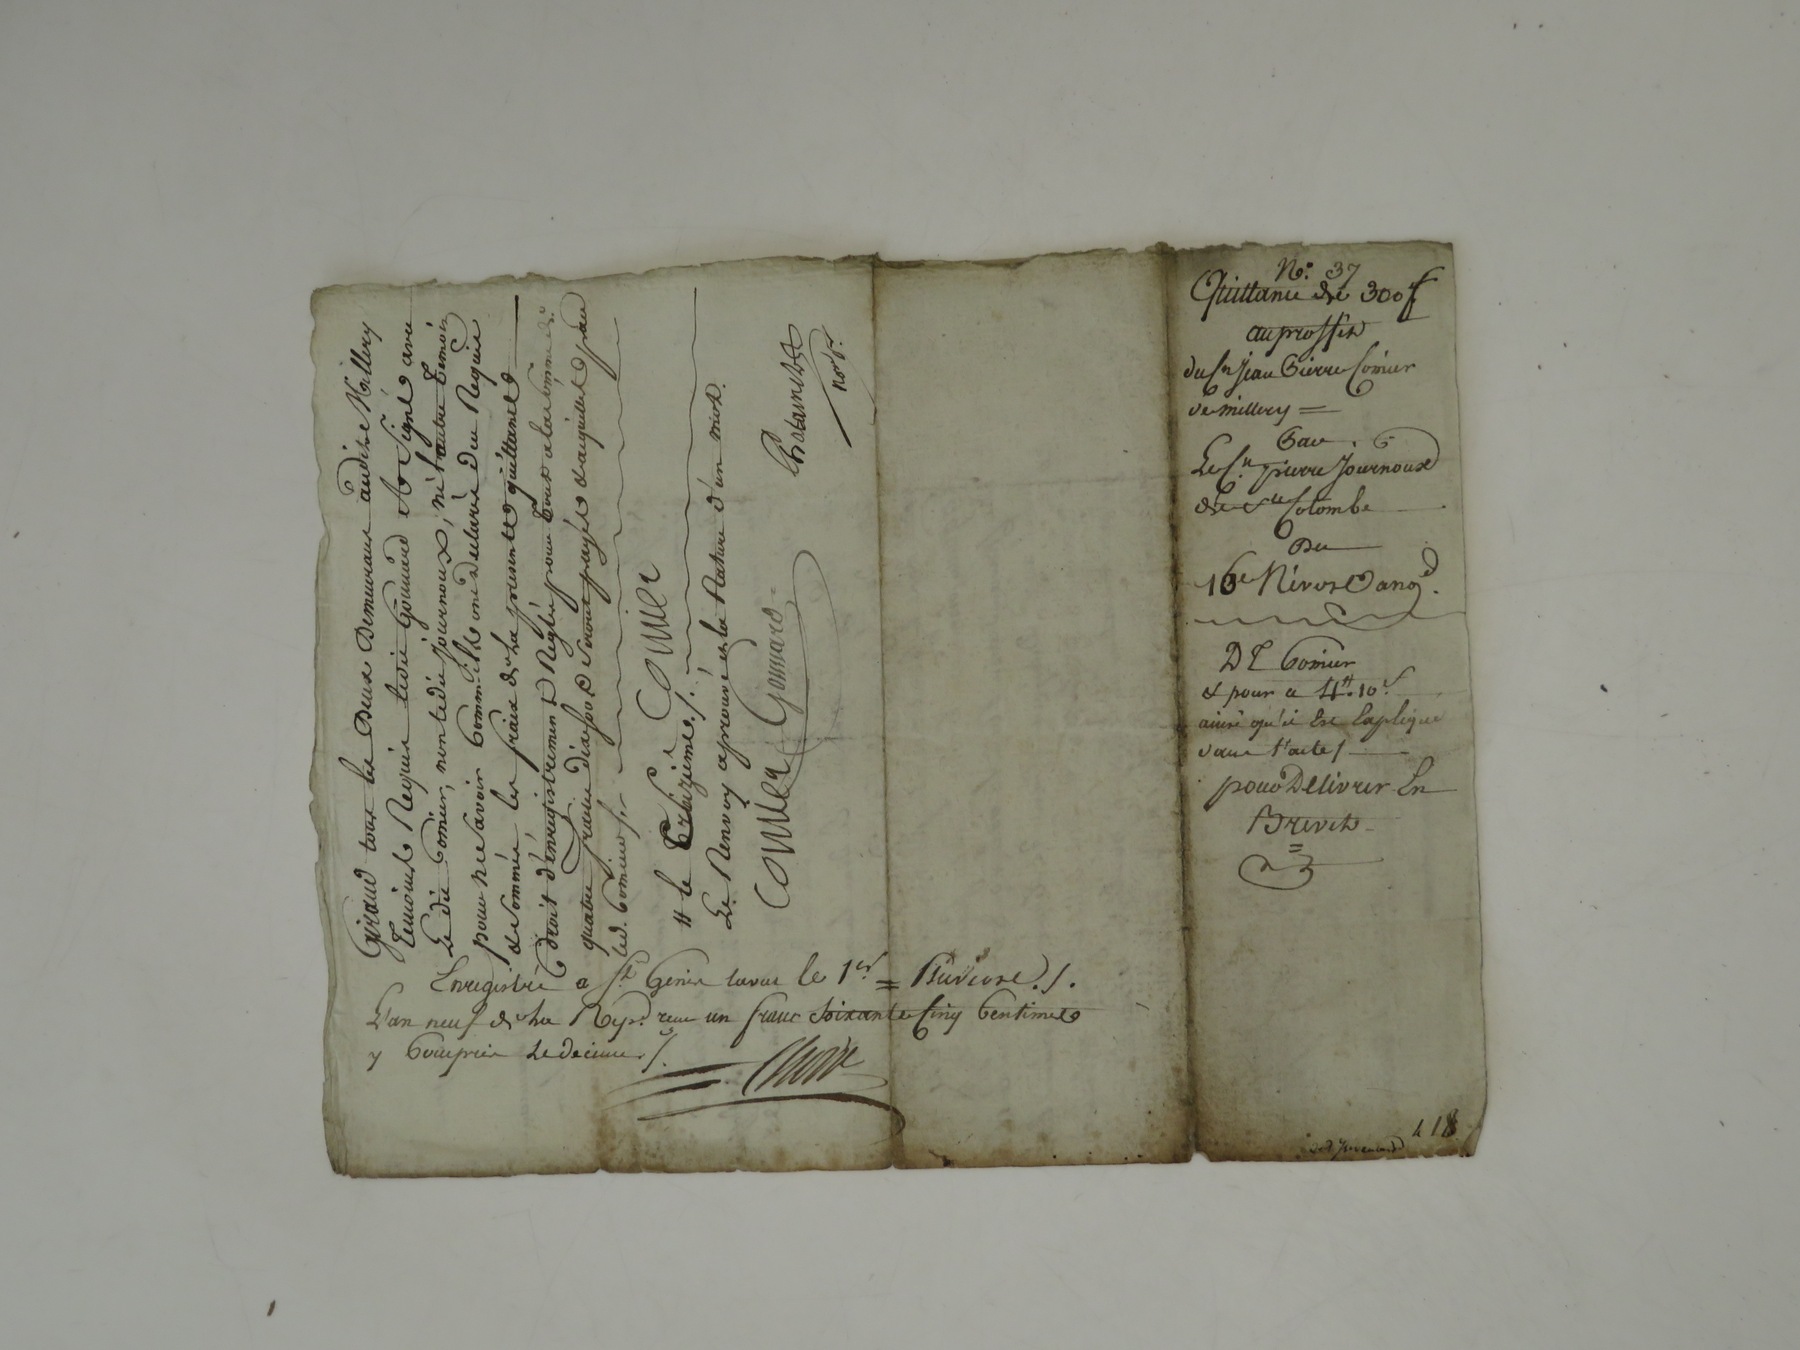 Giraud tous les Deux Demeurant audit Millery
Temoins Requis ledit Goÿnard A Signé avec
Le dit Comier, non ledit Journoux, ni l'autre Temoin
pour ne savoir Comm'ils ont déclaré de ce Requis
et Sommés les fraix de la presente quittance
droit d'enregistrement Reglés pour tout a la somme de
quatre francs dix sous Seront payés et aquités par
led. Comier ./.
# le Treizième ./. Comier
Le Renvoy aprouvé et la Rature d'un mot.
Comier Gonnard
not. p.
Enregistré a St. Genis Laval le 1er = Pluviose ./.
L'an neuf de la Rep. reçu un franc Soixante Cinq Centimes
y Compris Le decime ./.
No. 37
Quittance de 300 f
au proffit
du Sr. Jean Pierre Comier
de millery =
Par
Le Sr. pierre Journoux
de Ste Colombe
Du
16e Nivose an 9
DZ Comier
et pour a 4# 10s
ainsi qu'il Est Expliqué
dans l'acte /
pour Delivrer En
Brevet
=